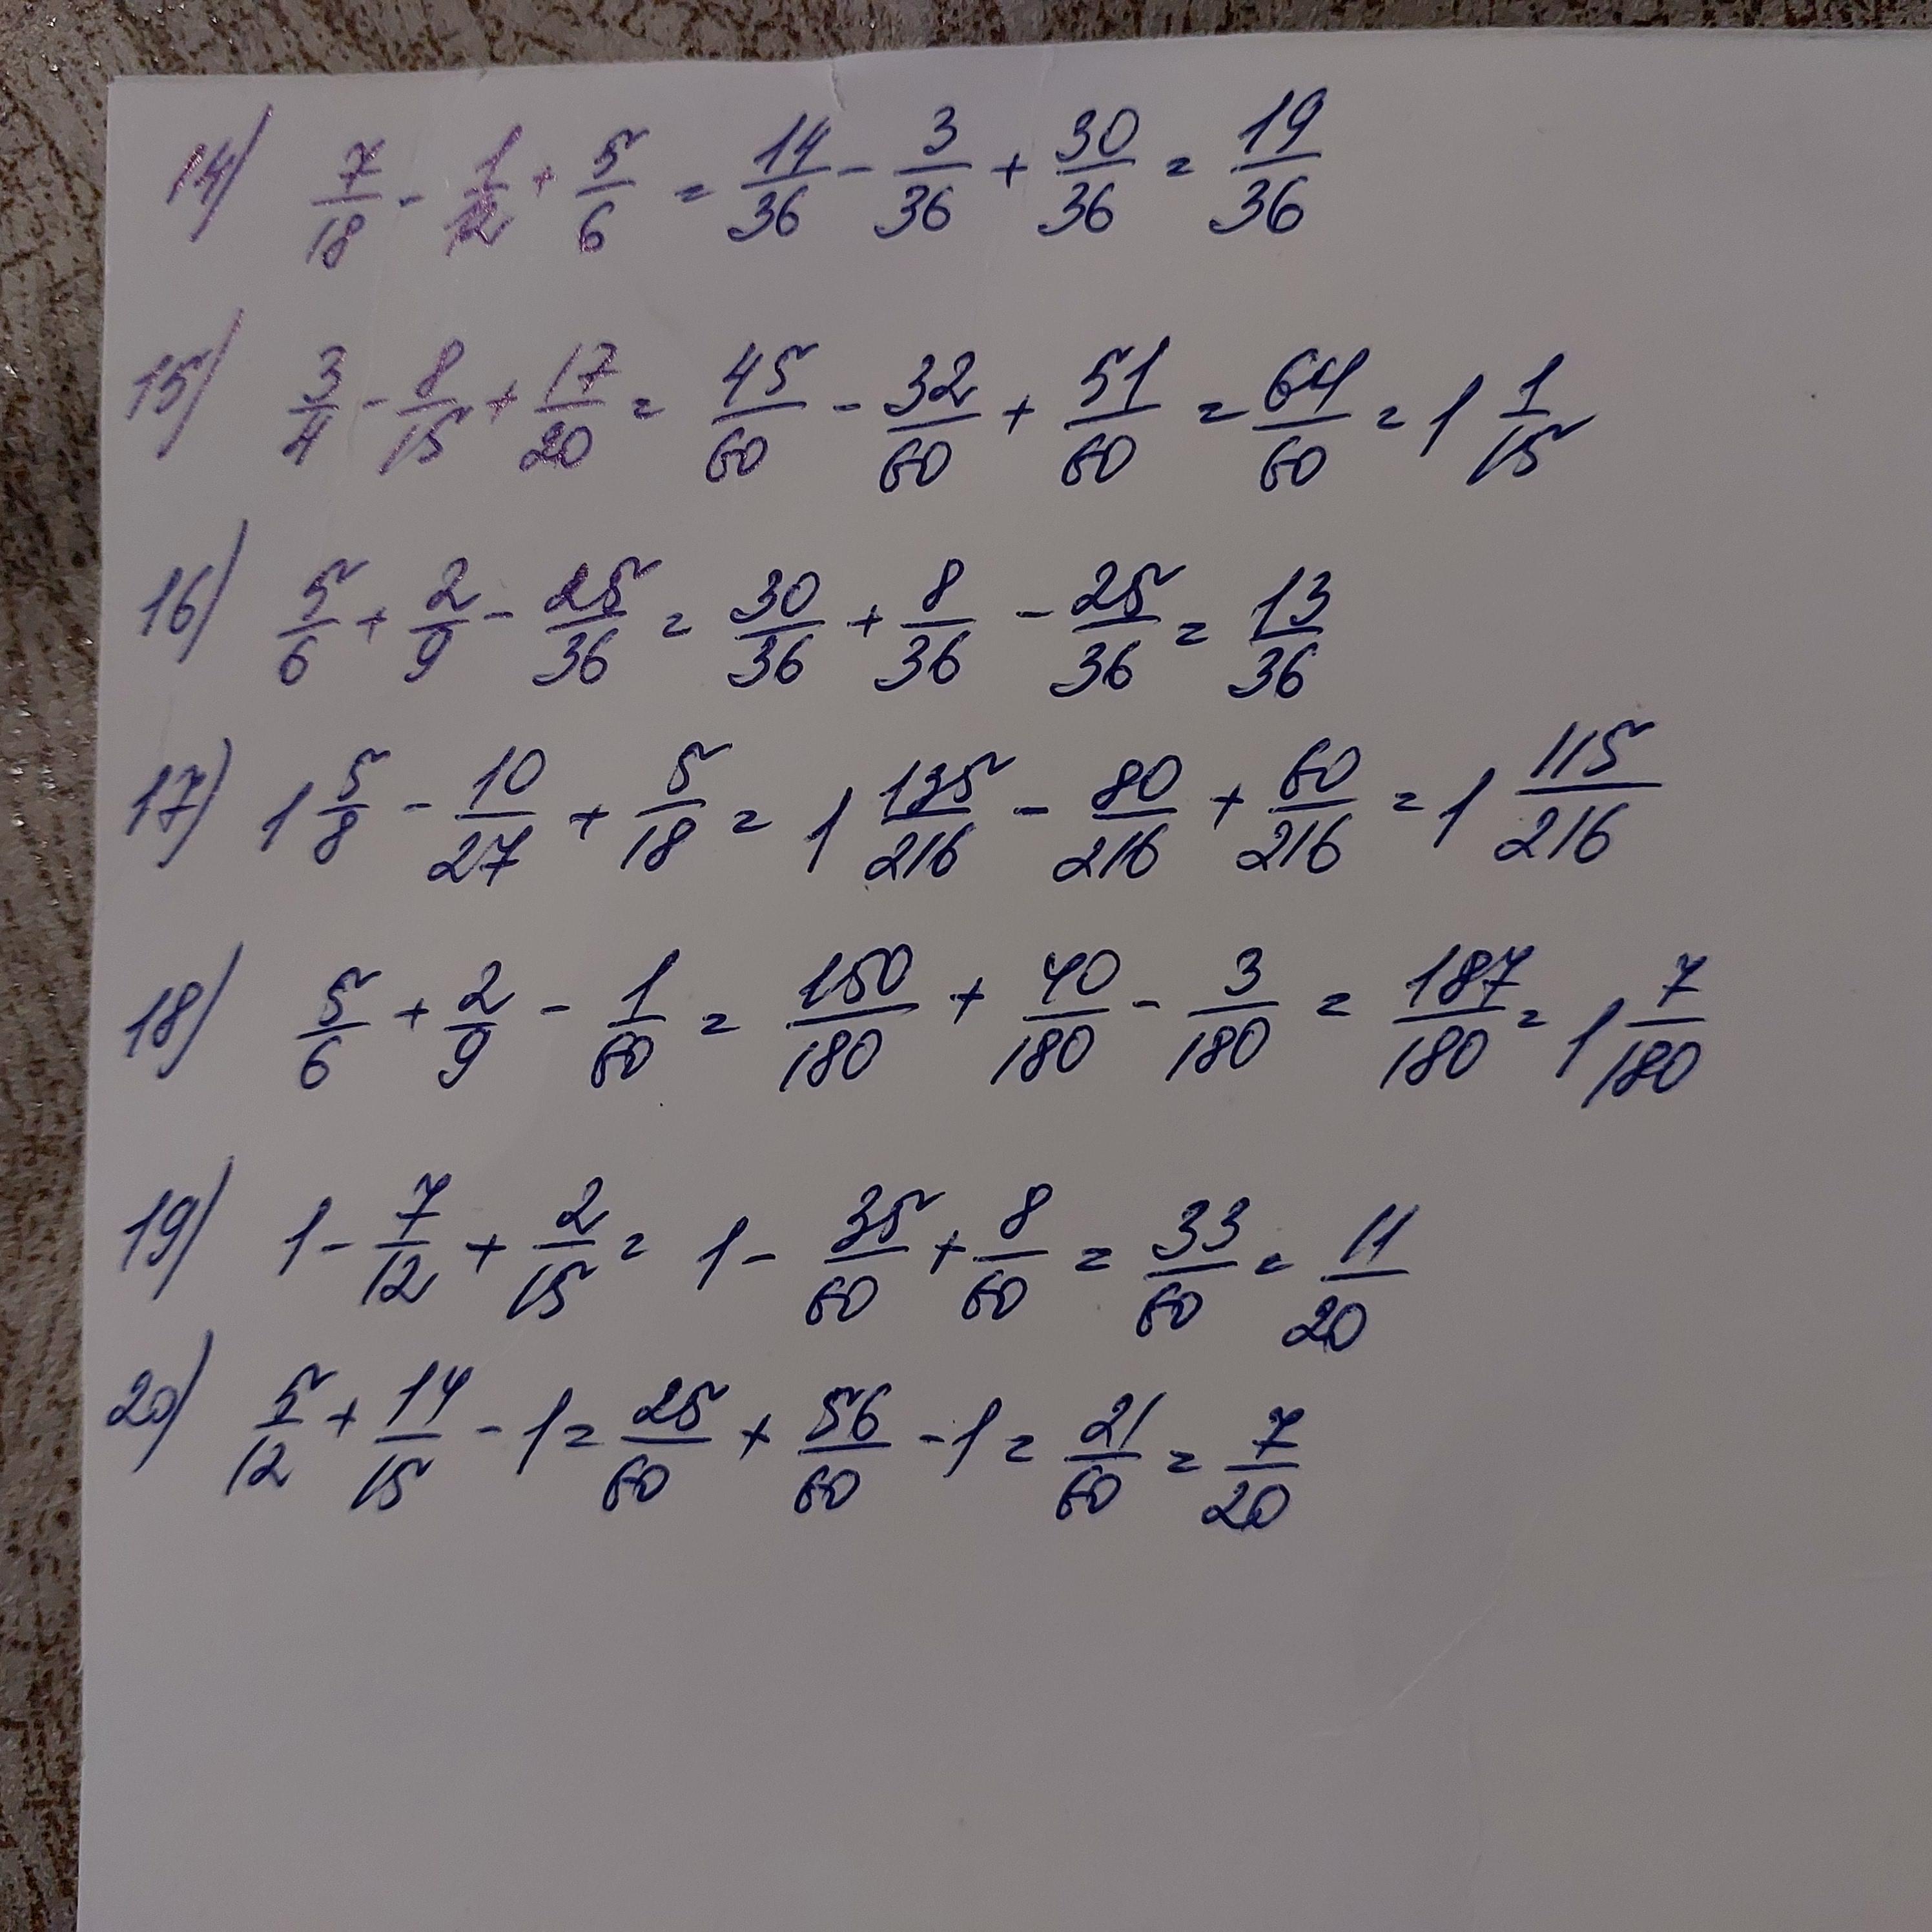 14) 7/18 - 1/12 + 5/6 = 14/36 - 3/36 + 30/36 = 19/36
15) 3/4 - 8/15 + 17/20 = 45/60 - 32/60 + 51/60 = 64/60 = 1 1/15
16) 5/6 + 2/9 - 25/36 = 30/36 + 8/36 - 25/36 = 13/36
17) 1 5/8 - 10/27 + 5/18 = 1 135/216 - 80/216 + 60/216 = 1 115/216
18) 5/6 + 2/9 - 1/60 = 150/180 + 40/180 - 3/180 = 187/180 = 1 7/180
19) 1 - 7/12 + 2/15 = 1 - 35/60 + 8/60 = 33/60 = 11/20
20) 5/12 + 14/15 - 1 = 25/60 + 56/60 - 1 = 21/60 = 7/20